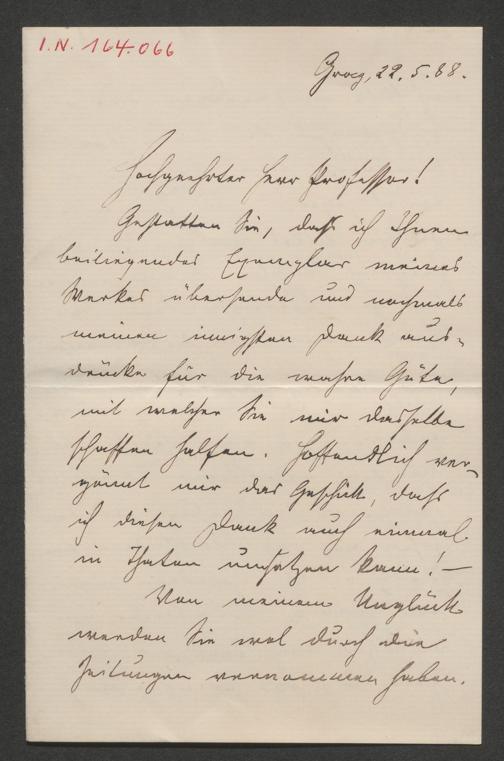 I.N. 164.066
Graz, 22. 5. 88.
Hochgeehrter Herr Professor!
Gestatten Sie, daß ich Ihnen
beiliegendes Exemplar meines
Werkes übersende und nochmals
meinen innigsten Dank aus-
drücke für die wahre Güte,
mit welcher Sie mir dasselbe
schaffen halfen. Hoffentlich ver-
gönnt mir das Geschick, daß
ich diesen Dank auch einmal
in Thaten umsetzen kann! —
Von meinem Unglück
werden Sie wol durch die
Zeitungen vernommen haben.